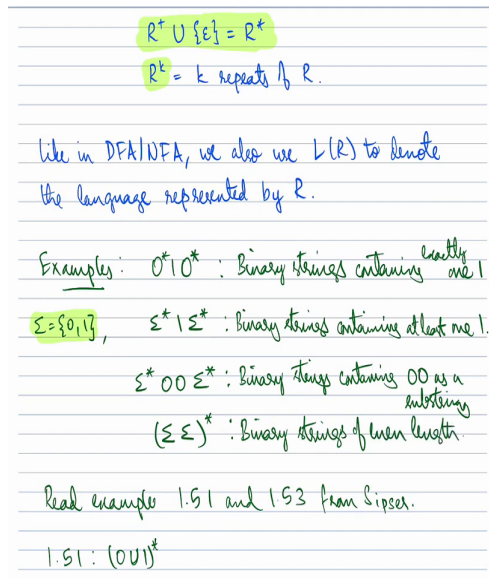 R⁺ ∪ {ε} = R*
Rᵏ = k repeats of R.
Like in DFA/NFA, we also use L(R) to denote
the language represented by R.
Examples: 0*10* : Binary strings containing exactly one 1
Σ={0,1}, Σ*1Σ* : Binary strings containing at least one 1.
Σ*00Σ* : Binary strings containing 00 as a substring
(ΣΣ)* : Binary strings of even length.
Read examples 1.51 and 1.53 from Sipser.
1.51 : (0∪1)*